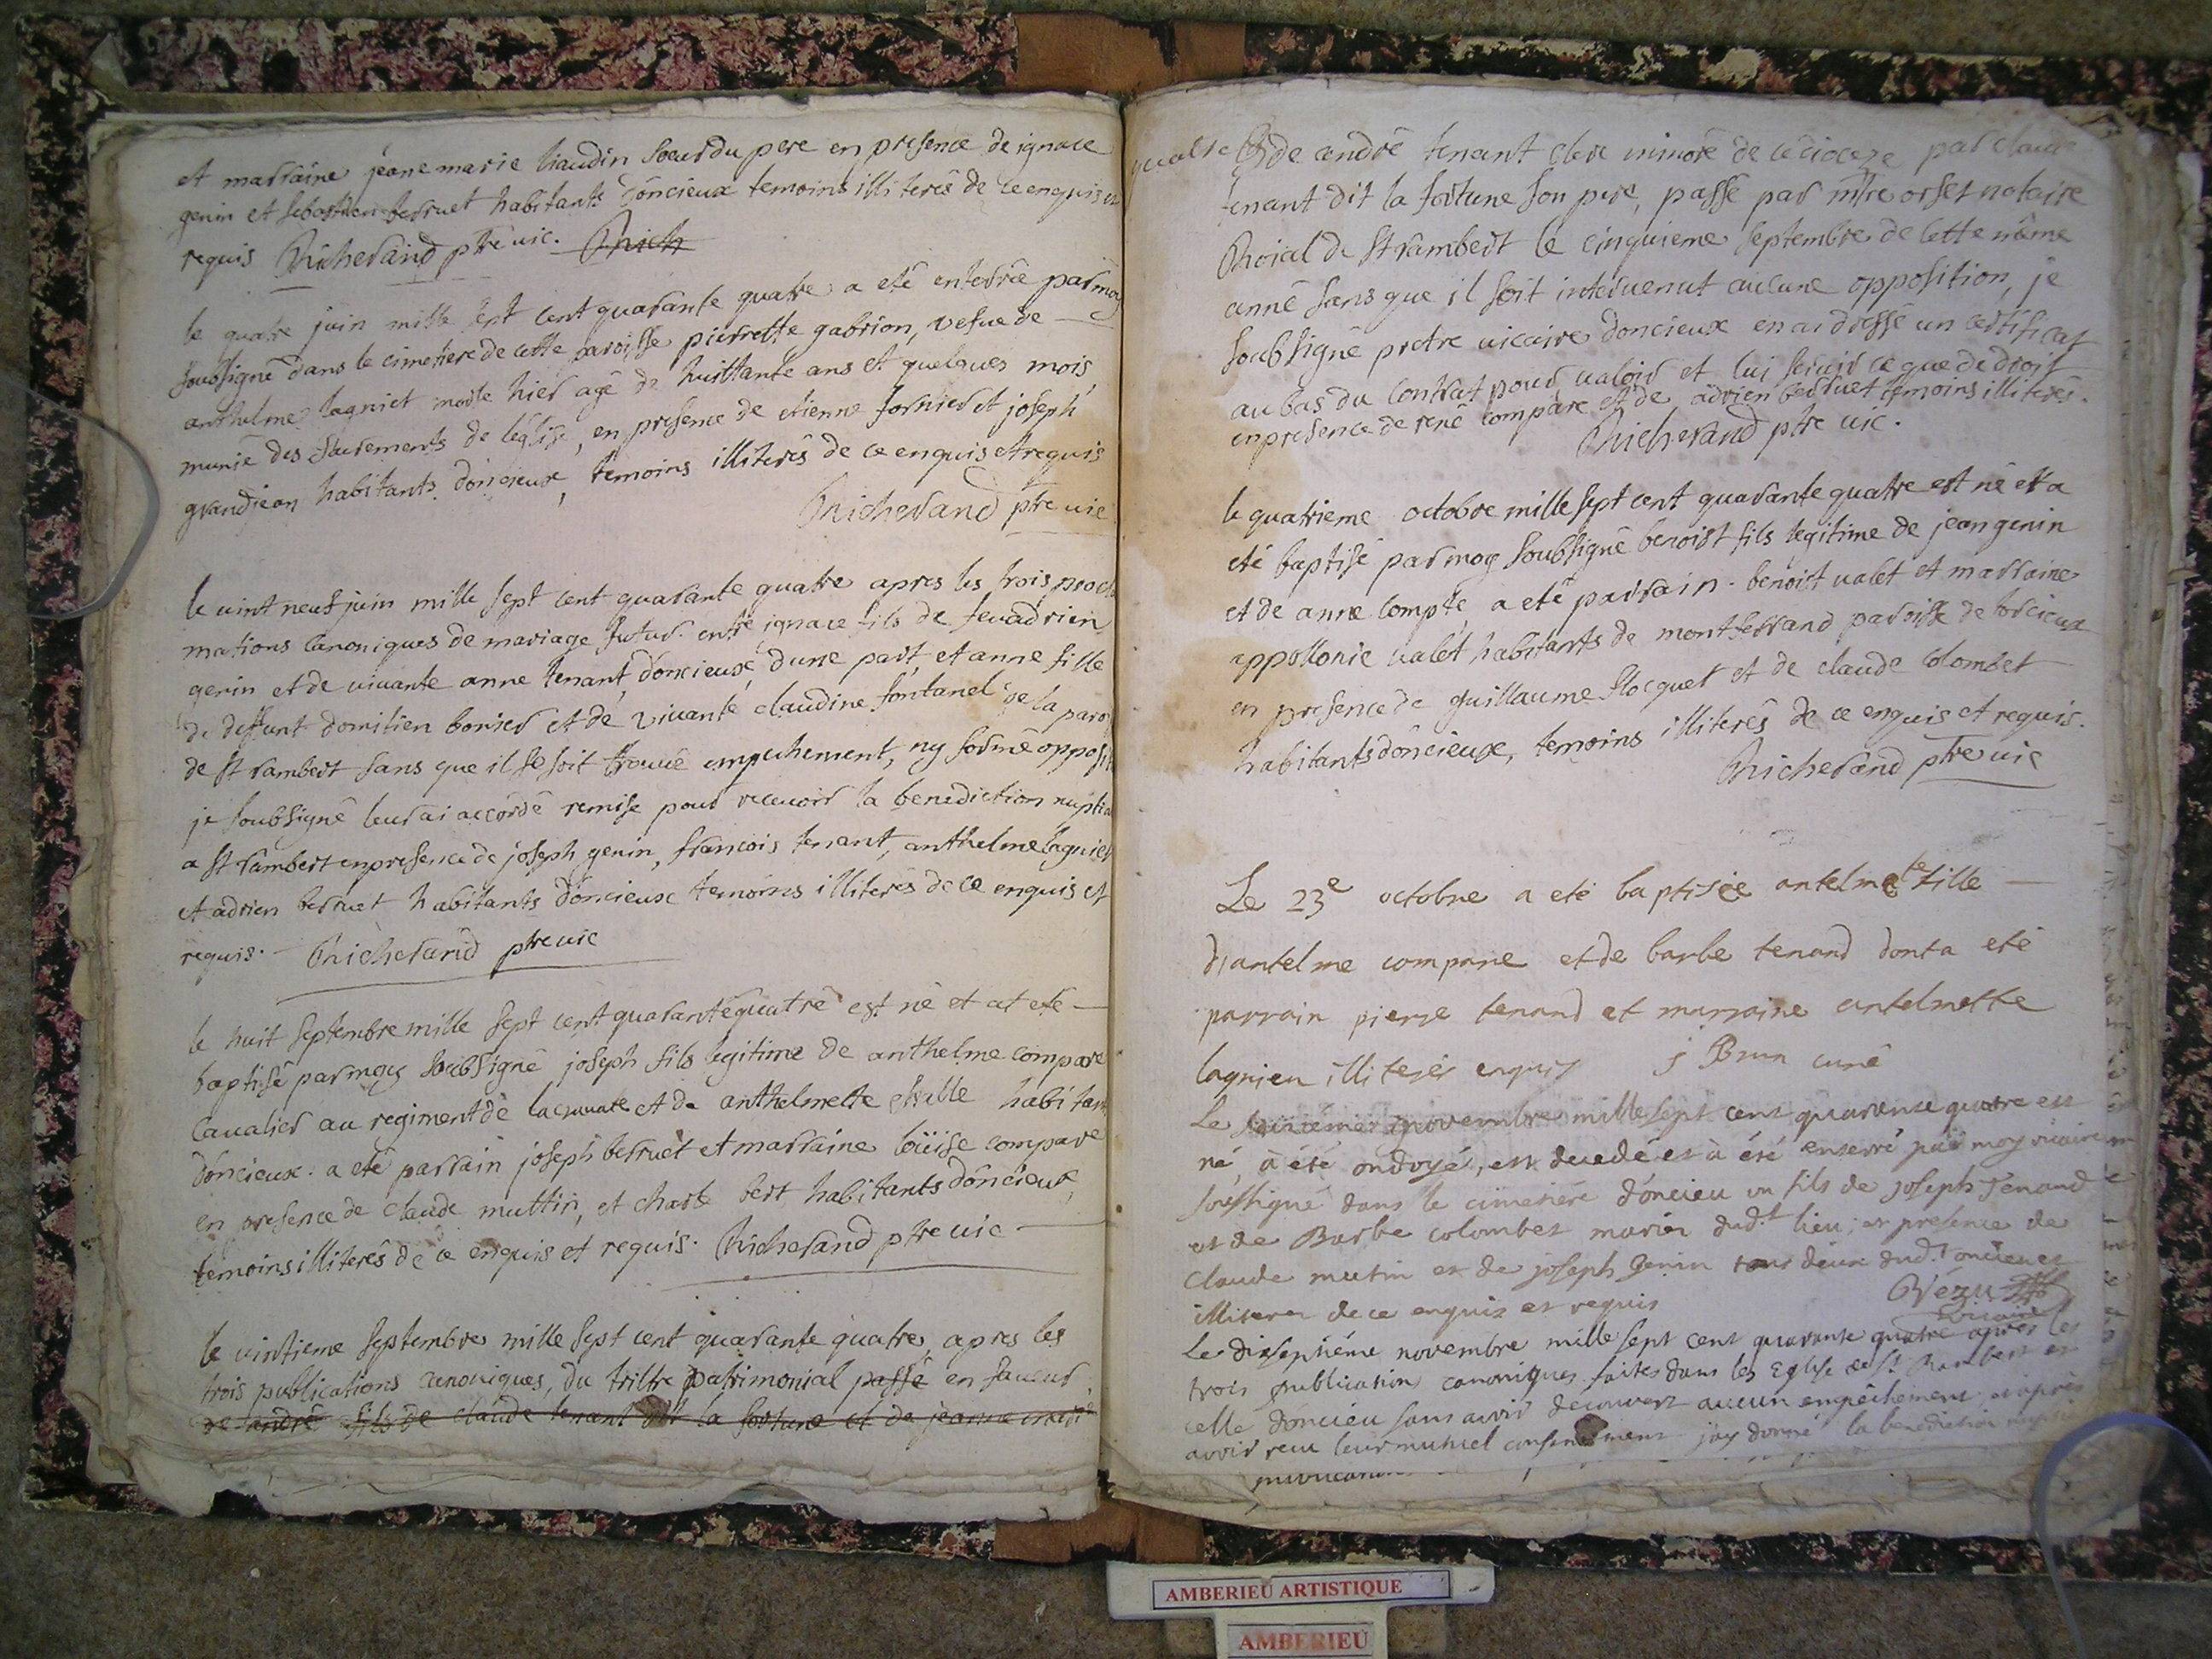 et marraine jeane marie liaudin soeur du pere en presence de ignace
genin et sebastien berruet habitants d'oncieux temoins illiterés de ce enquis et
requis Richerand ptre vic. Rich
le quatre juin mille sept cent quarante quatre a eté enterrée par moy
soubsigné dans le cimetiere de cette paroisse pierrette gabrion, vefue de
anthelme lagniet morte hier agé de huittante ans et quelques mois,
munie des sacrements de l'église, en presence de etienne fornier et joseph
grandjean habitants d'oncieux, temoins illiterés de ce enquis et requis
Richerand ptre vic
le vint neuf juin mille sept cent quarante quatre apres les trois procla
mations canoniques de mariage futur entre ignace fils de feu adrien
genin et de vivante anne tenant d'oncieux, d'une part, et anne fille
de deffunt domitien borier et de vivante claudine fontanel de la paroi
de St rambert sans que il se soit trouvé empechement, ny formé opposit
je soubsigné leur ai accordé remise pour recevoir la benediction nuptia
a St rambert en presence de joseph genin, francois tenant, anthelme lagniet
et adrien berruet habitants d'oncieux temoins illiterés de ce enquis et
requis. Richerand ptre vic
le huit septembre mille sept cent quarante quatre est né et at eté
baptisé par moy soubsigné joseph fils legitime de anthelme compare
cavalier au regiment de et de anthelmette habitant
d'oncieux. a eté parrain joseph berruet et marraine loüise compare
en presence de claude muttin, et charle bert habitants d'oncieux,
temoins illiterés de ce enquis et requis. Richerand ptre vic
le vintieme septembre mille sept cent quarante quatre, apres les
trois publications canoniques, du triltre patrimonial passé en faveur
de andré fils de claude tenant dit la fortune et de jeanne
quatre de andré tenant clerc minoré de ce dioceze par claude
tenant dit la fortune son pere, passé par mtre orset notaire
Roial de St rambert le cinquieme septembre de cette même
anné sans que il soit intervenut aucune opposition, je
soubsigné pretre vicaire d'oncieux en ai dressé un certificat
au bas du contrat pour valoir et lui servir ce que de droit
en presence de rené compare et de adrien berruet temoins illiterés.
Richerand ptre vic.
le quatrieme octobre mille sept cent quarante quatre est né et a
eté baptisé par moy soubsigné benoist fils legitime de jean genin
et de anne compte, a eté parrain. benoist valet et marraine
appollonie valet habitants de montferrand paroisse de torcieux
en presence de guillaume flocquet et de claude colombet
habitants d'oncieux, temoins illiterés de ce enquis et requis.
Richerand ptre vic
Le 23e octobre a eté baptisée antelmete fille
d'antelme compare et de barbe tenand dont a eté
parrain pierre tenand et marraine antelmette
lagnieu illiterés enquis j Brun curé
Le novembre mille sept cent quarante quatre est
né, à été ondoyé, est decedé et à été enterré par moy vicaire
soussigné dans le cimetiére d'oncieu un fils de joseph Tenand
et de Barbe colombet mariés dud.t lieu; en presence de
Claude mutin et de joseph Genin tous deux dud.t oncieu et
illiteres de ce enquis et requis Vézu
vicaire
Le dixseptiéme novembre mille sept cent quarante quatre après les
trois publications canoniques faites dans les Eglise de St. Rambert et
celle d'oncieu sans avoir decouvert aucun empêchement et après
avoir recu leur mutuel consentement j'ay donné la benediction nuptia
AMBERIEU ARTISTIQUE
AMBERIEU